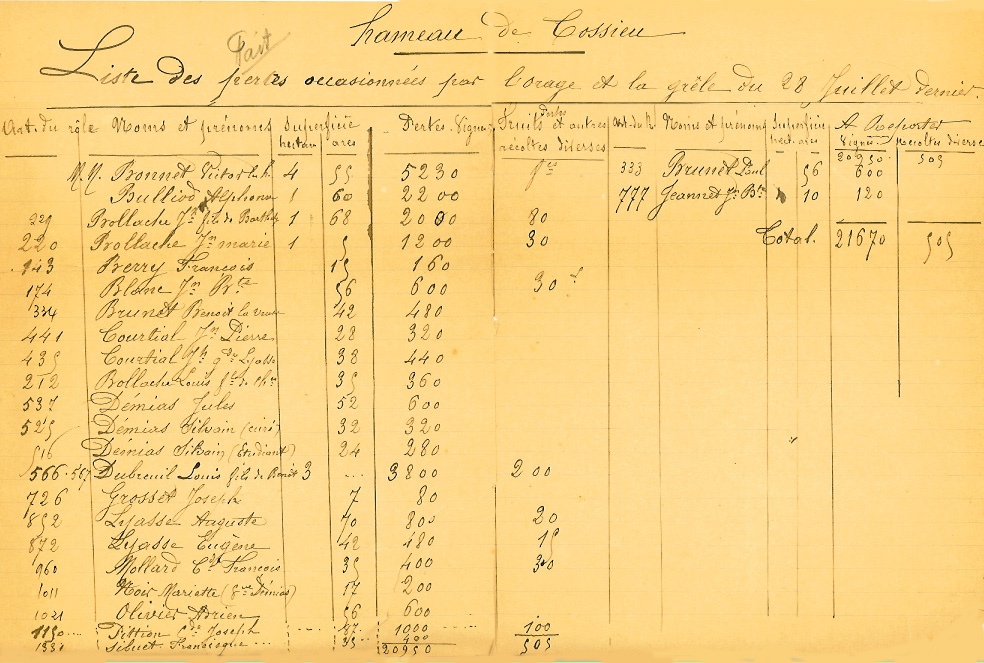 hameau de Cossieu
Fait
Liste des pertes occasionnées par l'orage et la grêle du 28 Juillet dernier.
Art. du rôle Noms et prénoms Superficie Pertes. Vignes Pertes Fruits et autres récoltes diverses Art. du R. Noms et prénoms Superficie A Reporter
hectares ares hect. ares Vignes. récoltes diverses
20950. 505
Bonnet 4 55 5230 333 Brunet Paul 56 600
Bulliod Alphonse 1 60 2200 777 Jeannet Jn Bte 10 120
221 Bollache Jn fils de Barth 1 68 2000 80
220 Bollache Jn marie 1 5 1200 30 Total. 21670 505
143 Berry François 15 160
174 Blanc Jn Bte 56 600 30
334 Brunet Benoit la veuve 42 480
441 Courtial Jn Pierre 28 320
435 Courtial Jh Lyasse 38 440
212 Bollache Louis fils de 35 360
537 Démias Jules 52 600
525 Démias Silvain (curé) 32 320
516 Démias Silvain (Etudiant) 24 280
566.567 Dubreuil Louis fils de Benoit 3 ... 3800 200
726 Grosset Joseph 7 80
852 Lyasse Auguste 70 800 20
872 Lyasse Eugène 42 480 15
960 Mollard François 35 400 30
1011 Noir Mariette (Démias) 17 200
1021 Olivier Adrien 56 600
1150 Pittion Joseph 87 1000 100
1330 Sibuet Françoise 35 400
20950 505